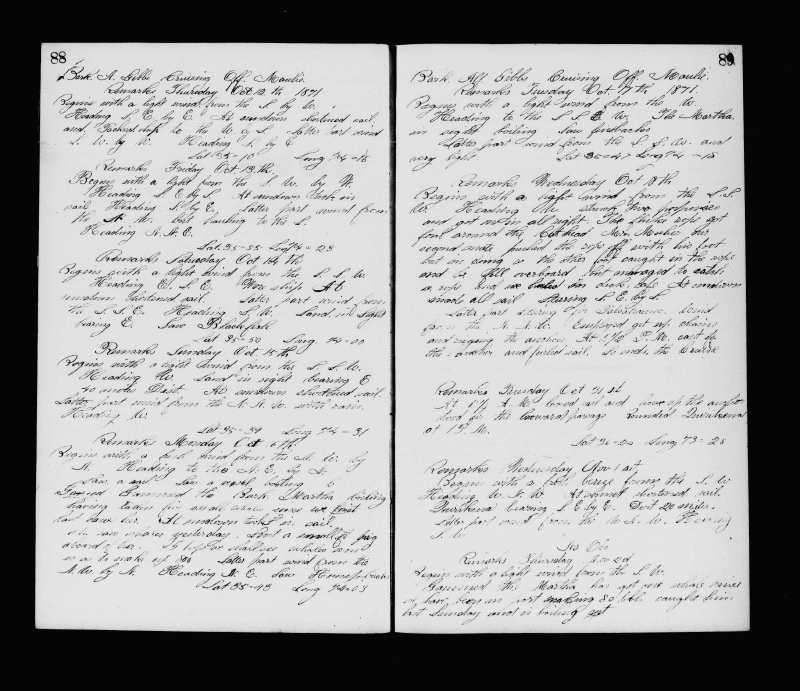 88
Bark A. Gibbs Cruising Off. Maulie
Remarks Thursday Oct 12 th 1871
Begins with a light wind from the S. by W.
Heading S. E. by E. At sundown shortened sail.
and Tacked ship to the W. by S. Latter part wind
S. W. by W. Heading S. by E
Lat 35-10 Long 74-18
Remarks Friday Oct 13 th
Begins with a light from the S. W. by W.
Heading S. E by S. At sundown took in
sail Heading S. by E. Latter part wind from
the N. W. but hauling to the S.
Heading N. N. E.
Lat 35-35 Long 74-23
Remarks Saturday Oct 14 th
Begins with a light wind from the S. S. W.
Heading E. S. E. Wore ship At
sundown shortened sail. Latter part wind from
the S. S. E. Heading S. W. Land in sight
bearing E. Saw Blackfish
Lat 35-50 Long 74-00
Remarks Sunday Oct. 15 th
Begins with a light wind from the S. S. W.
Heading W. Land in sight bearing E
40 miles Dist. At sundown shortened sail.
Latter part wind from the N. N. W. with rain.
Heading W.
Lat 35-39 Long 74-31
Remarks Monday Oct 16 th
Begins with a wind from the N. W. by
N. Heading to the N. E. by N.
Saw a sail Saw a vessel boiling &
Gammed the Bark Martha boiling
having taken five small whales since we last
had saw her. At sundown took in sail.
saw whales yesterday. Sent a small pig
aboard of her.
so as to make up 800 Latter part wind from the
N. W. by N. Heading N. E. Saw Humpbacks
Lat 35-43 Long 74-03
89
Bark Alf Gibbs Cruising Off. Maulie.
Remarks Tuesday Oct. 17 th 1871.
Begins with a light wind from the W.
Heading to the S. S. E W. The Martha
in sight boiling Saw finbacks
Latter part wind from the S. S. W. and
very light Lat 35-47 Long 74-18
Remarks Wednesday Oct 18th
Begins with a light wind from the S. S.
W. Heading W. struck two porpoises
and got in all right. The fluke rope got
foul around the cathead Mr. our
second mate pushed the rope off with his foot
but in doing so the other foot caught in the rope
and he fell overboard but managed to catch
a rope and we hauled him on deck. At sundown
made all sail steering S. E. by S.
Latter part steering for Talcahuano. Wind
from the N. N. W. Employed get up chains
and ringing the anchors. At 1/2 P. M. east of
the anchor and furled sail. So ends the Cruise
Remarks Tuesday Oct 31 st
At A. M. loosed sail and hove up the anchor
stood for the leeward passage Rounded Quiriquina
at 1 P. M.
Lat 36-24 Long 73-28
Remarks Wednesday Nov 1 st.
Begins with a fresh breeze from the S. W
Heading W. N. W. At sunset shortened sail.
Quiriquina bearing S. E by E. Dist 20 miles.
Latter part wind from the W. S. W. Heading
S. W
No Obs
Remarks Thursday Nov 2d
Begins with a light wind from the S. W.
Gammed the Martha has got one whale since
we have been in port making 80 bbls caught him
last Sunday and is boiling yet